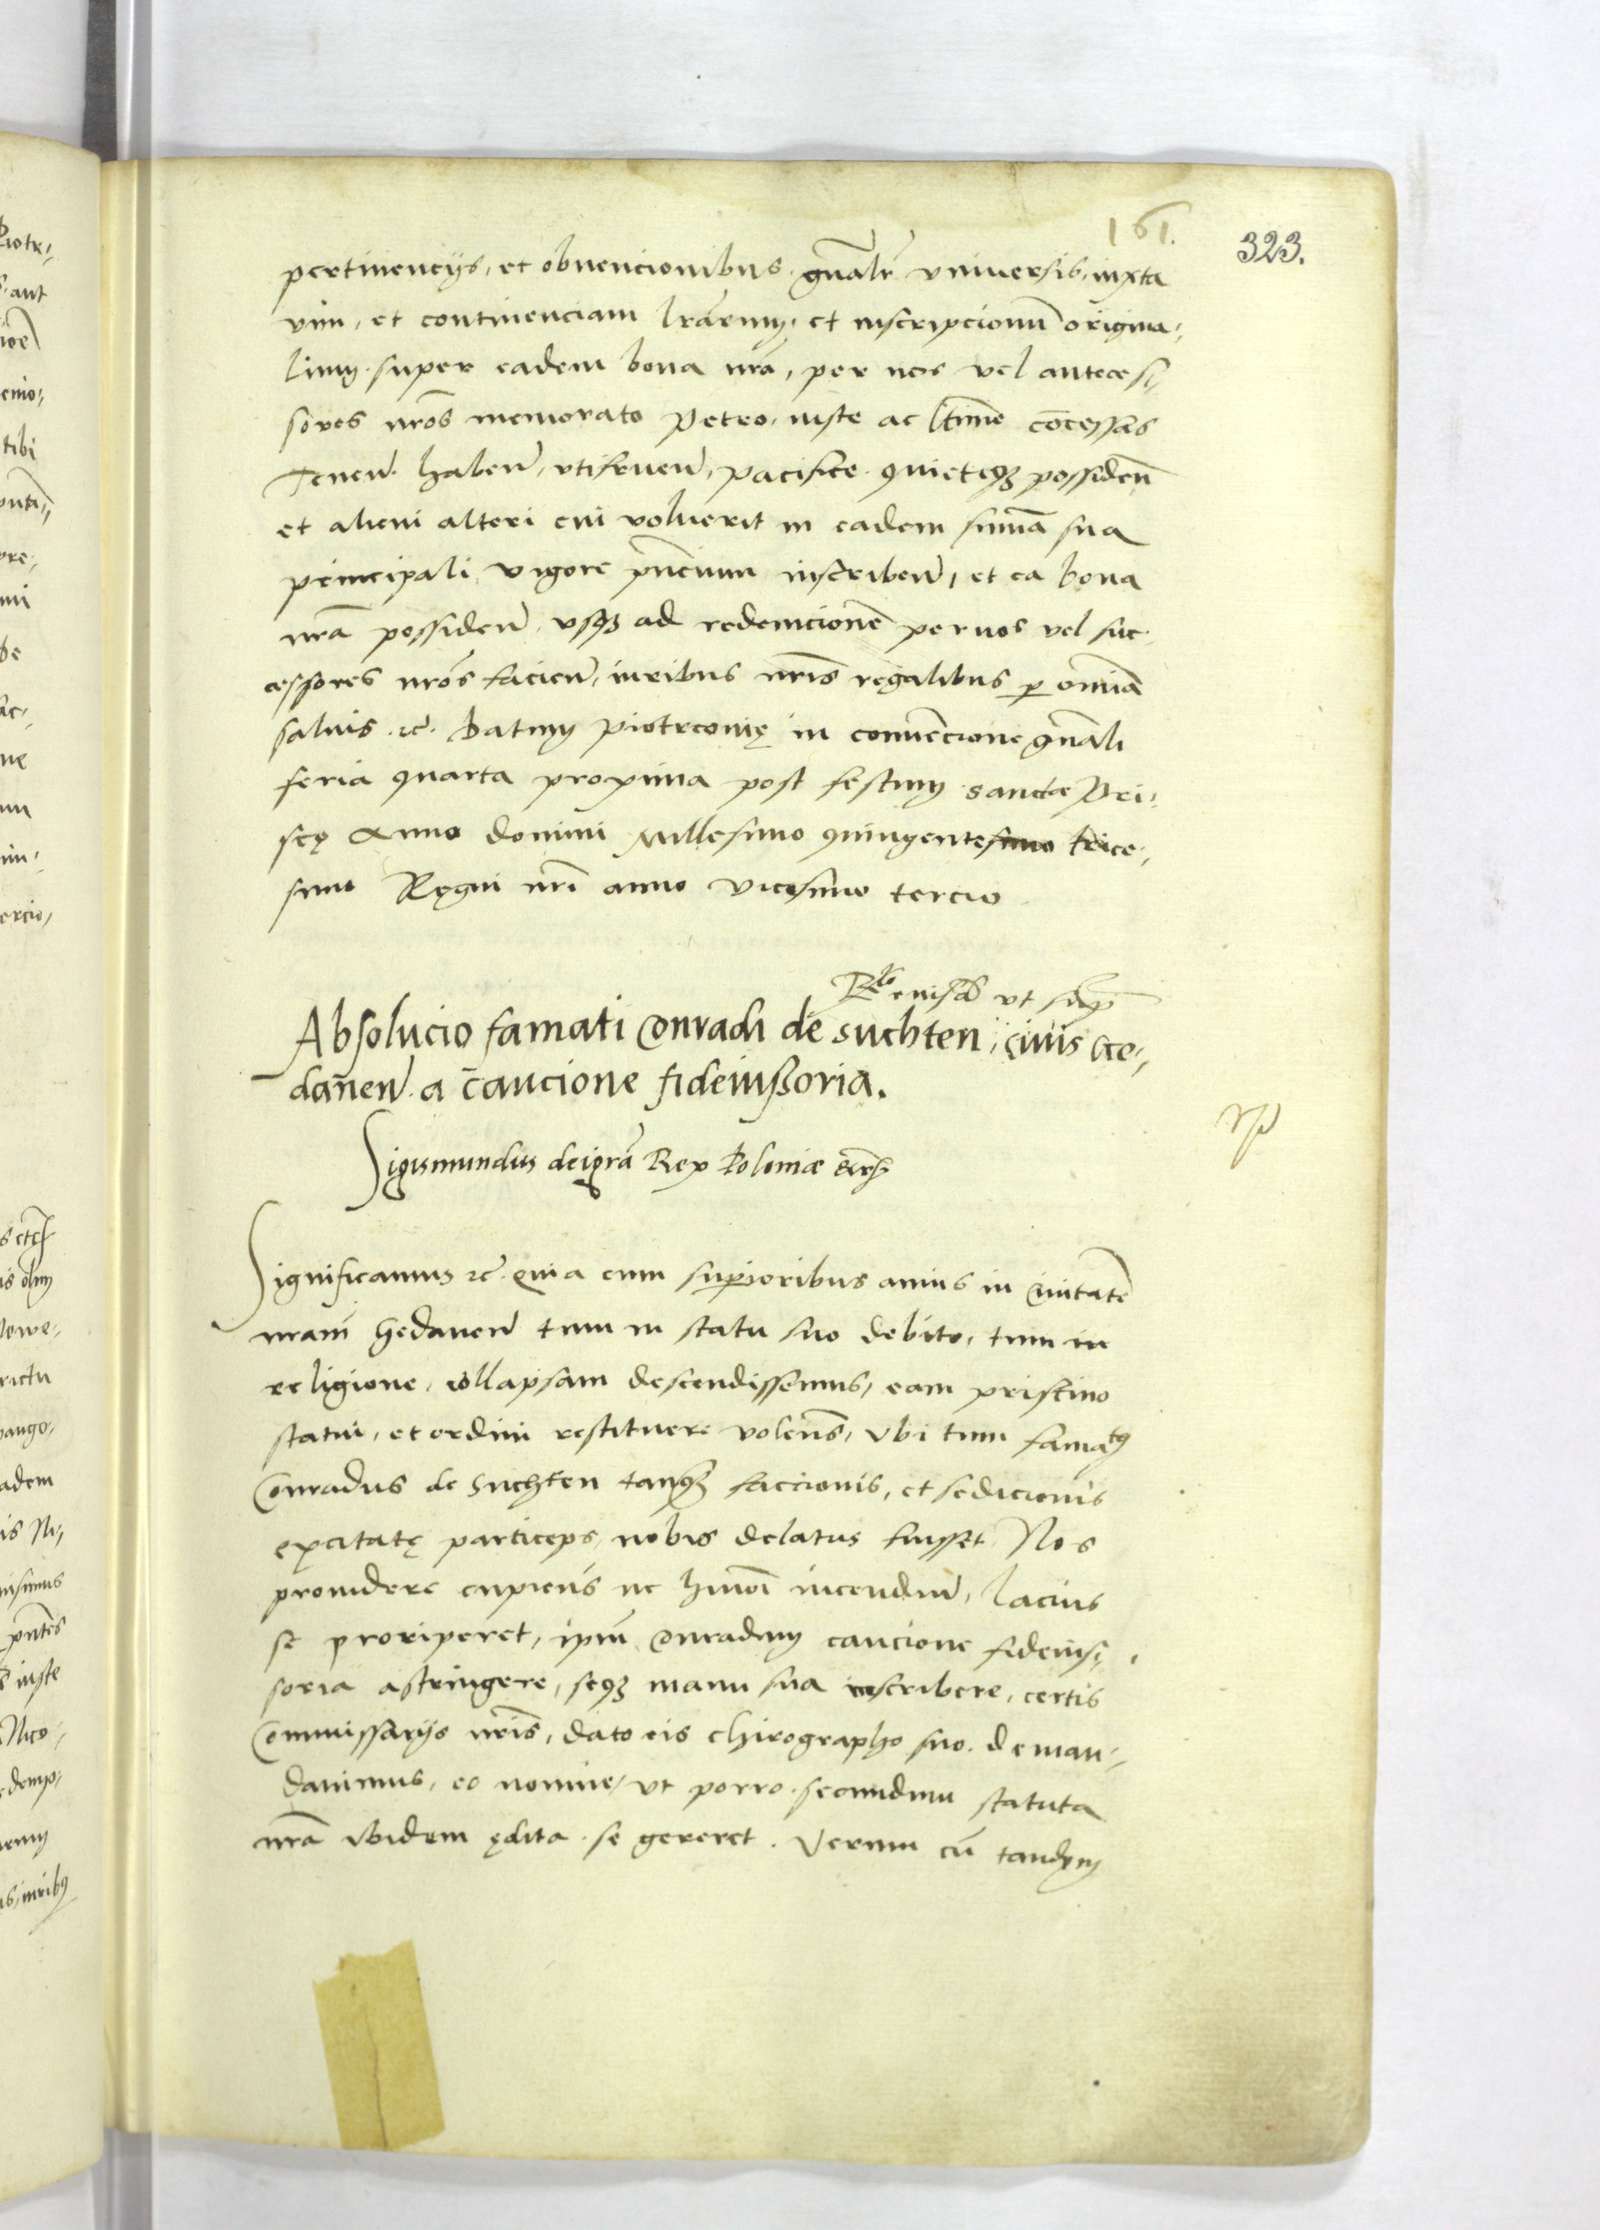 161.
323.
pertinencijs, et obuencionibus gnalr vniuersis, iuxta
vim, et continenciam lrarum, et inscripcionum origina-
lium super eadem bona nra, per nos vel anteces-
sores nros memorato Petro, iuste ac ltime concessas
Tenen haben, vtifruen, pacifice quieteque possiden
et alieni alteri cui voluerit in eadem summa sua
principali vigore pncium inscriben, et ea bona
nra possiden vsque ad redemcionem per nos vel suc-
cessores nros facien, iuribus nris regalibus p omnia
saluis. etc. Datum Piotrcouię in conuencione gnali
feria quarta proxima post festum sanctæ Pri-
scę Anno domini Millesimo quingentesimo trice-
simo Regni nri anno vicesimo tercio
Rlo eiusd vt supra
Absolucio famati Conradi de suchten, ciuis Ge-
danen a caucione fideiußoria.
Sigismundus dei gra Rex Poloniæ etc
Significamus etc. Quia cum superioribus annis in Ciuitatem
nram Gedanen tum in statu suo debito, tum in
religione, collapsam descendissemus, eam pristino
statui, et ordini restituere volens, Vbi tum famatus
Conradus de Suchten tanquam faccionis, et sedicionis
excitatę particeps, nobis delatus fuisset Nos
prouidere cupiens ne hmoi incendium, lacius
se proriperet, ipsum Conradum caucione fideius-
soria astringere, seque manu sua inscribere, certis
Commissarijs nris, dato eis chirographo suo demand-
dauimus, eo nomine, vt porro secundum statuta
nra ibidem ędita se gereret. Verum cum tandem